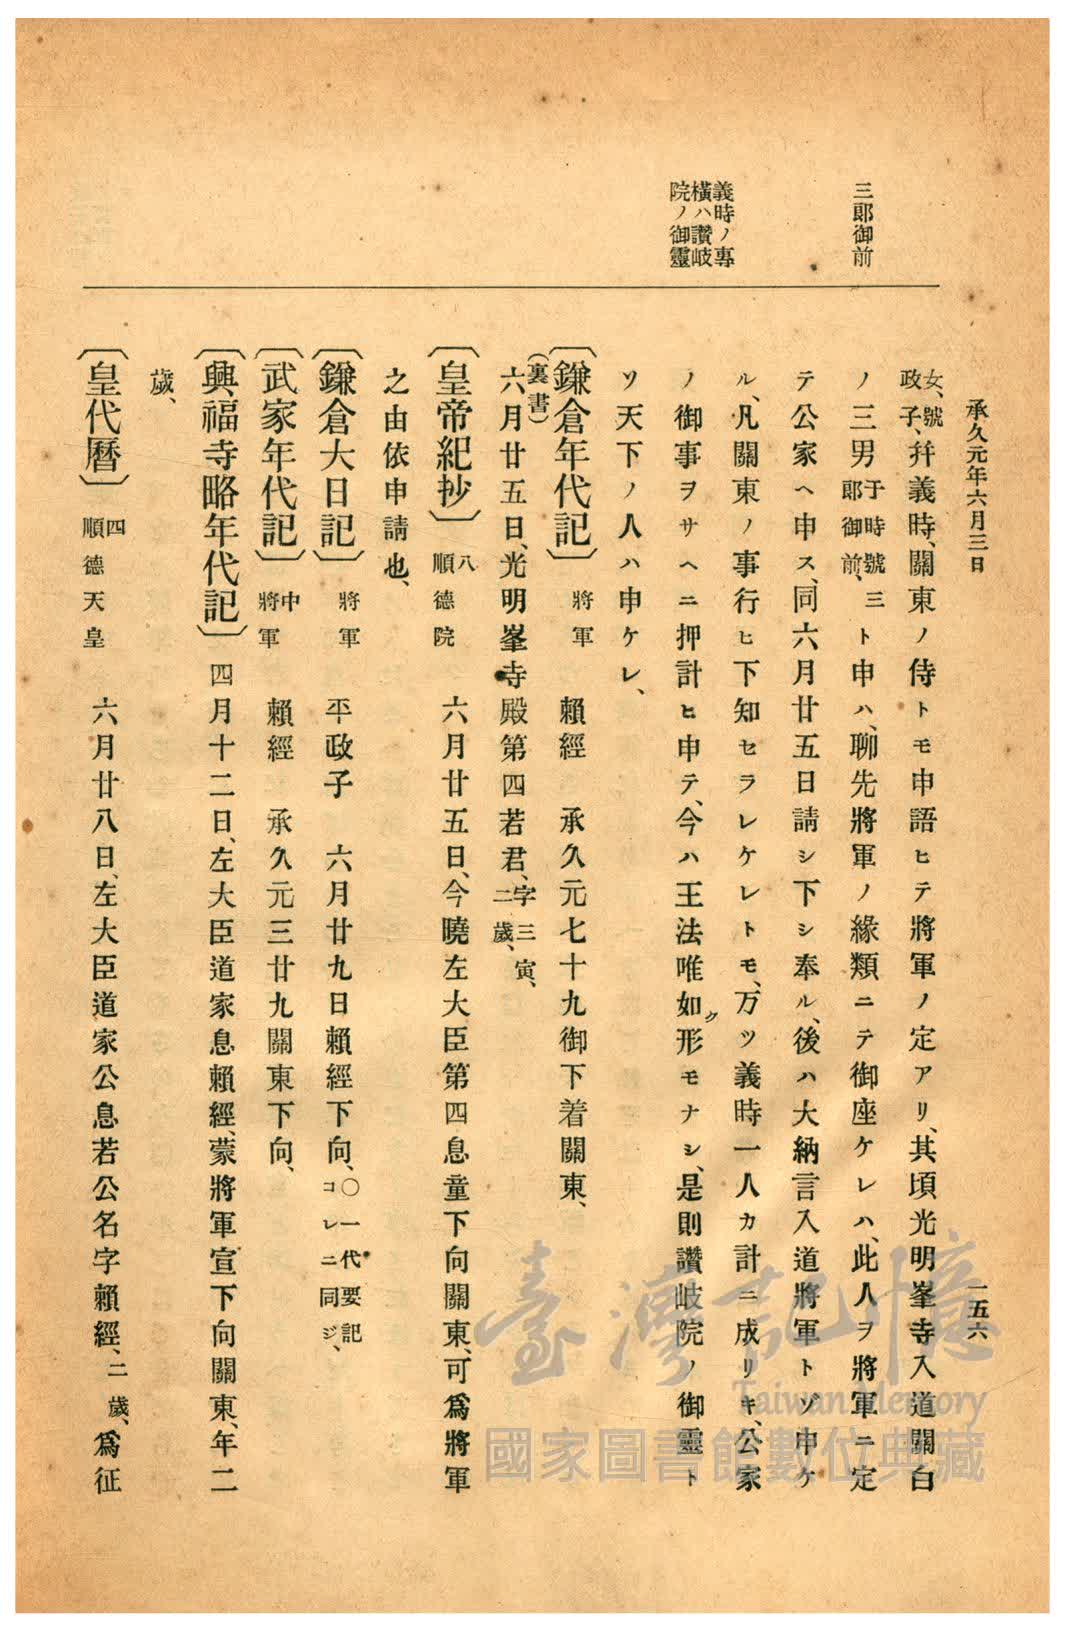 承久元年六月三日
一五六
三郎御前
義時ノ專
橫ハ讚岐
院ノ御靈
女、號
政子、幷義時、關東ノ侍トモ申語ヒテ將軍ノ定アリ、其頃光明峯寺入道關白
ノ三男于時號三郎御前、ト申ハ、聊先將軍ノ緣類ニテ御座ケレハ、此人ヲ將軍ニ定
テ公家ヘ申ス、同六月廿五日請シ下シ奉ル、後ハ大納言入道將軍トゾ申ケ
ル、凡關東ノ事行ヒ下知セラレケレトモ、万ツ義時一人カ計ニ成リキ、公家
ノ御事ヲサヘニ押計ヒ申テ、今ハ王法唯如ク形モナシ、是則讚岐院ノ御靈ト
ソ天下ノ人ハ申ケレ、
〔鎌倉年代記〕將軍 賴經 承久元七十九御下着關東、
(裏書)
六月廿五日、光明峯寺殿第四若君、字三寅、二歲、
〔皇帝紀抄〕八順德院 六月廿五日、今曉左大臣第四息童下向關東、可爲將軍
之由依申請也、
〔鎌倉大日記〕將軍 平政子 六月廿九日賴經下向、〇一代要記コレニ同ジ、
〔武家年代記〕中將軍 賴經 承久元三廿九關東下向、
〔興福寺略年代記〕四月十二日、左大臣道家息賴經、蒙將軍宣下向關東、年二
歲、
〔皇代曆〕四順德天皇 六月廿八日、左大臣道家公息若公名字賴經、二歲、爲征
臺灣記憶
Taiwan Memory
國家圖書館數位典藏